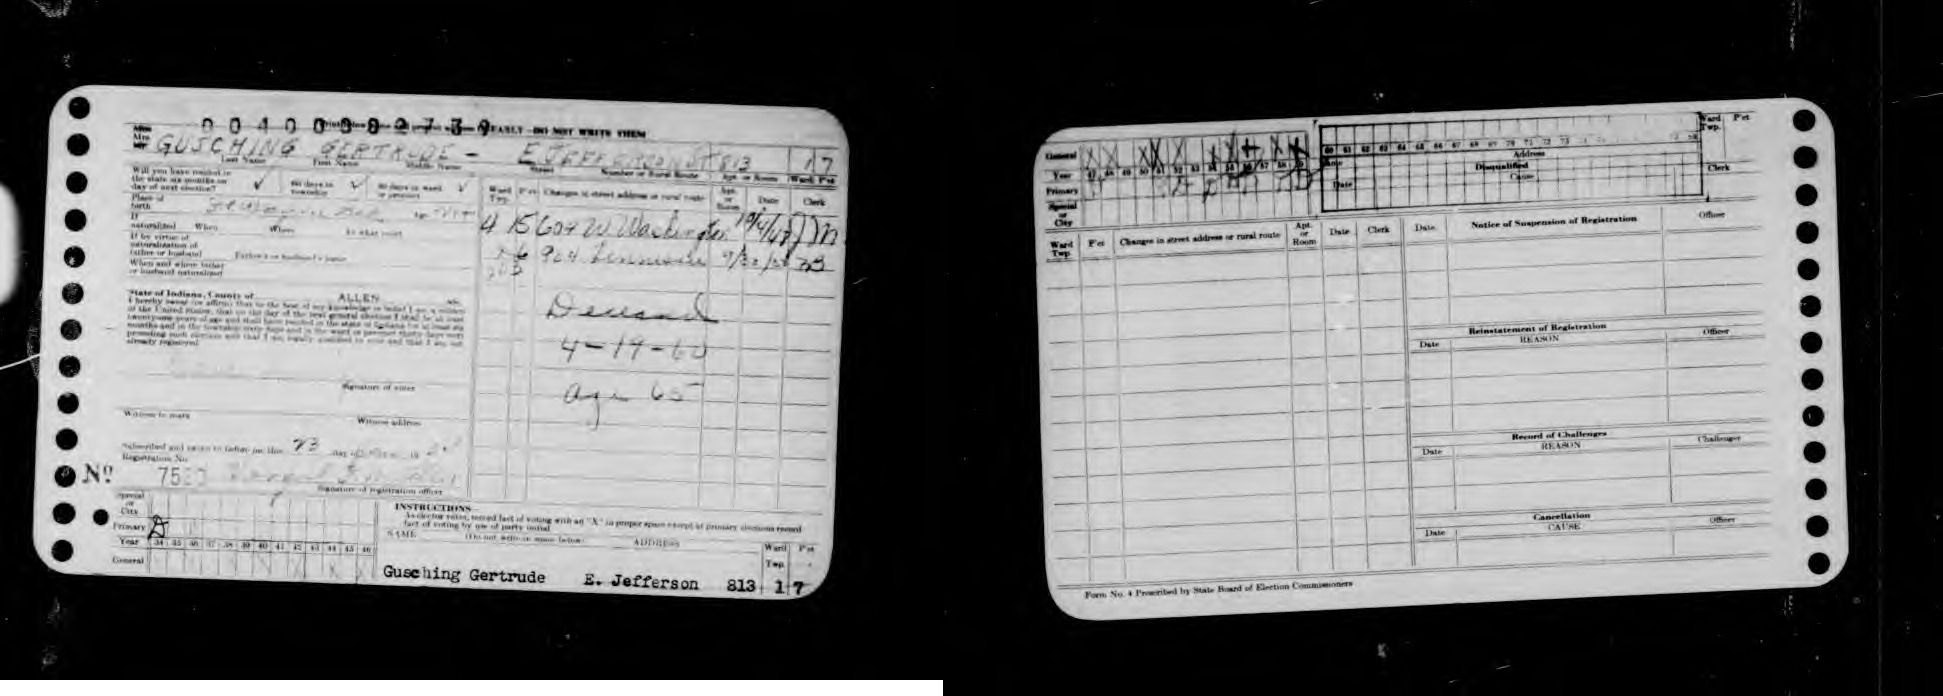 00400092739
EARLY - DO NOT WRITE THEM
Miss
Mrs.
Mr
GUSCHING GERTRUDE - E JEFFERSON ST 813 1 7
Last Name First Name Middle Name Street Number or Rural Route Apt. or Room Ward P'ct
Will you have resided in
the state six months on
day of next election? ✓ 60 days in
township ✓ 30 days in ward
or precinct ✓
Place of
birth
If
naturalized When Where In what court
If by virtue of
naturalization of
father or husband Father's or husband's name
When and where father
or husband naturalized
State of Indiana, County of ALLEN ss:
I hereby swear (or affirm) that to the best of my knowledge and belief I am a citizen
of the United States, that on the day of the next general election I shall be at least
twenty-one years of age and shall have resided in the state of Indiana for at least six
months and in the township sixty days and in the ward or precinct thirty days next
preceding such election and that I am legally qualified to vote and that I am not
already registered
Signature of voter
Witness to mark Witness address
Subscribed and sworn to before me this 23 day
Registration No.
No.
Signature of registration officer
Ward
Twp. P'ct Changes in street address or rural route Apt.
or
Room Date Clerk
4 15 604 W Washington 10/4/47
904
Deceased
4-19-60
age 65
Special
or
City
Primary
Year 34 35 36 37 38 39 40 41 42 43 44 45 46
General
INSTRUCTIONS
As elector votes, record fact of voting with an "X" in proper space except at primary elections record
fact of voting by use of party initial
NAME (Do not write in space below) ADDRESS Ward
Twp. P'ct
Gusching Gertrude E. Jefferson 813 1 7
General
Year 47 48 49 50 51 52 53 54 55 56 57 58 59
Primary
Special
or
City
60 61 62 63 64 65 66 67 68 69 70 71 72 73
Address
Disqualified
Cause
Date
Ward
Twp. P'ct
Clerk
Ward
Twp. P'ct Changes in street address or rural route Apt.
or
Room Date Clerk
Date Notice of Suspension of Registration Officer
Reinstatement of Registration
Date REASON Officer
Record of Challenges
Date REASON Challenger
Cancellation
Date CAUSE Officer
Form No. 4 Prescribed by State Board of Election Commissioners